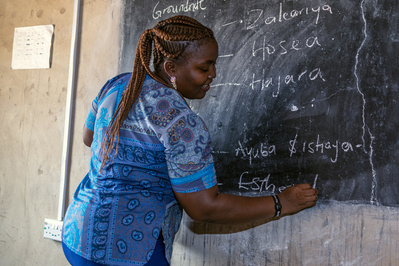 Groundnut
- Zakariya
- Hosea
- Hajara
- Ayuba & Ishaya -
Esthe